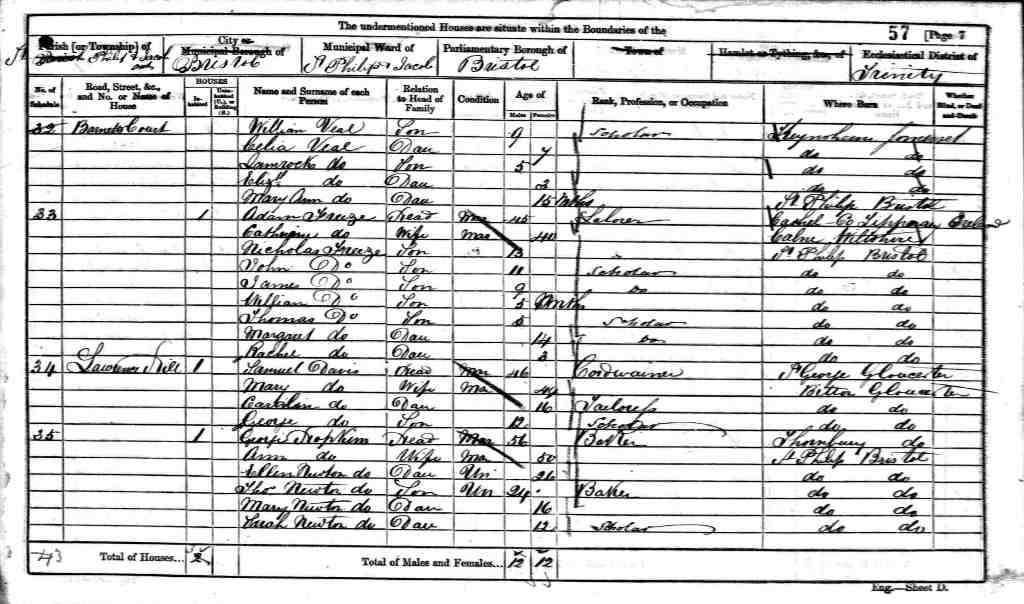 The undermentioned Houses are situate within the Boundaries of the
57 [Page 7
Parish [or Township] of
St Philip & Jacob
City or Municipal Borough of
Bristol
Municipal Ward of
St Philip & Jacob
Parliamentary Borough of
Bristol
Town of
Hamlet or Tything, &c., of
Ecclesiastical District of
Trinity
No. of Schedule
Road, Street, &c., and No. or Name of House
HOUSES
Inhabited
Uninhabited (U.), or Building (B.)
Name and Surname of each Person
Relation to Head of Family
Condition
Age of
Males
Females
Rank, Profession, or Occupation
Where Born
Whether Blind, or Deaf-and-Dumb
32 Barnets Court William Veal Son 9 Scholar Keynsham Somerset
Celia Veal Dau 7 do do
do Son 5 do do
Elizth do Dau 3 do do
Mary Ann do Dau 15 Mths St Philip Bristol
33 1 Adam Head Mar 45 Cashel Co Tipperary Ireland
Catherine do Wife Mar 40 Calne Wiltshire
Nicholas Son 13 St Philip Bristol
John Do Son 11 Scholar do do
James Do Son 9 Do do do
William Do Son 5 Mths do do
Thomas Do Son 5 Scholar do do
Margaret do Dau 14 Do do do
Rachel do Dau 3 do do
34 Lawrence Hill 1 Samuel Davis Head Mar 46 Cordwainer St George Gloucester
Mary do Wife Mar 49 Bitton Gloucester
do Dau 16 Tailoress do do
George do Son 12 Scholar do do
35 1 George Head Mar 56 Baker Thornbury do
Ann do Wife Mar 50 St Philip Bristol
Ellen Newton do Dau Un 26 do do
Thos Newton do Son Un 24 Baker do do
Mary Newton do Dau 16 do do
Sarah Newton do Dau 12 Scholar do do
Total of Houses... 2
Total of Males and Females... 12 12
Eng.—Sheet D.